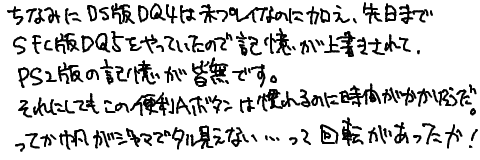 ちなみにDS版DQ4は未プレイなのに加え、先日まで
SFC版DQ5をやっていたので記憶が上書きされて、
PS2版の記憶が皆無です。
それにしてもこの便利Aボタンは慣れるのに時間がかかりそうだ。
ってか帆がジャマでタル見えない…って回転があったか!